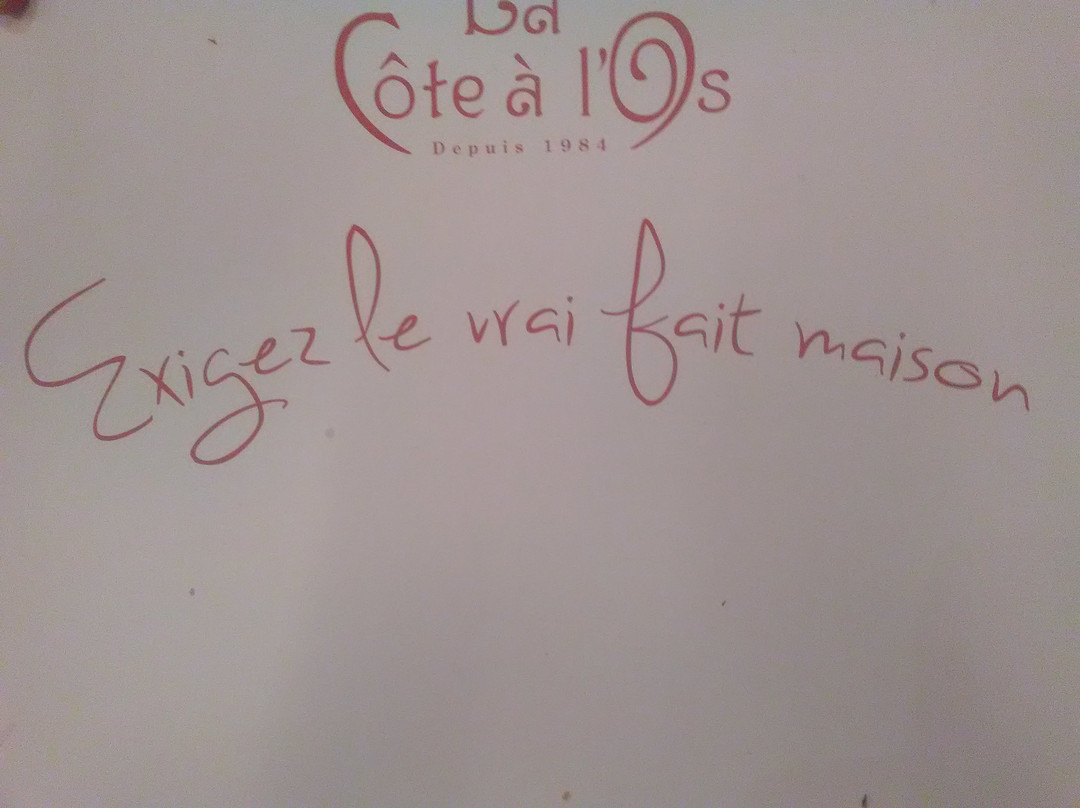 La
Côte à l'Os
Depuis 1984
Exigez le vrai fait maison